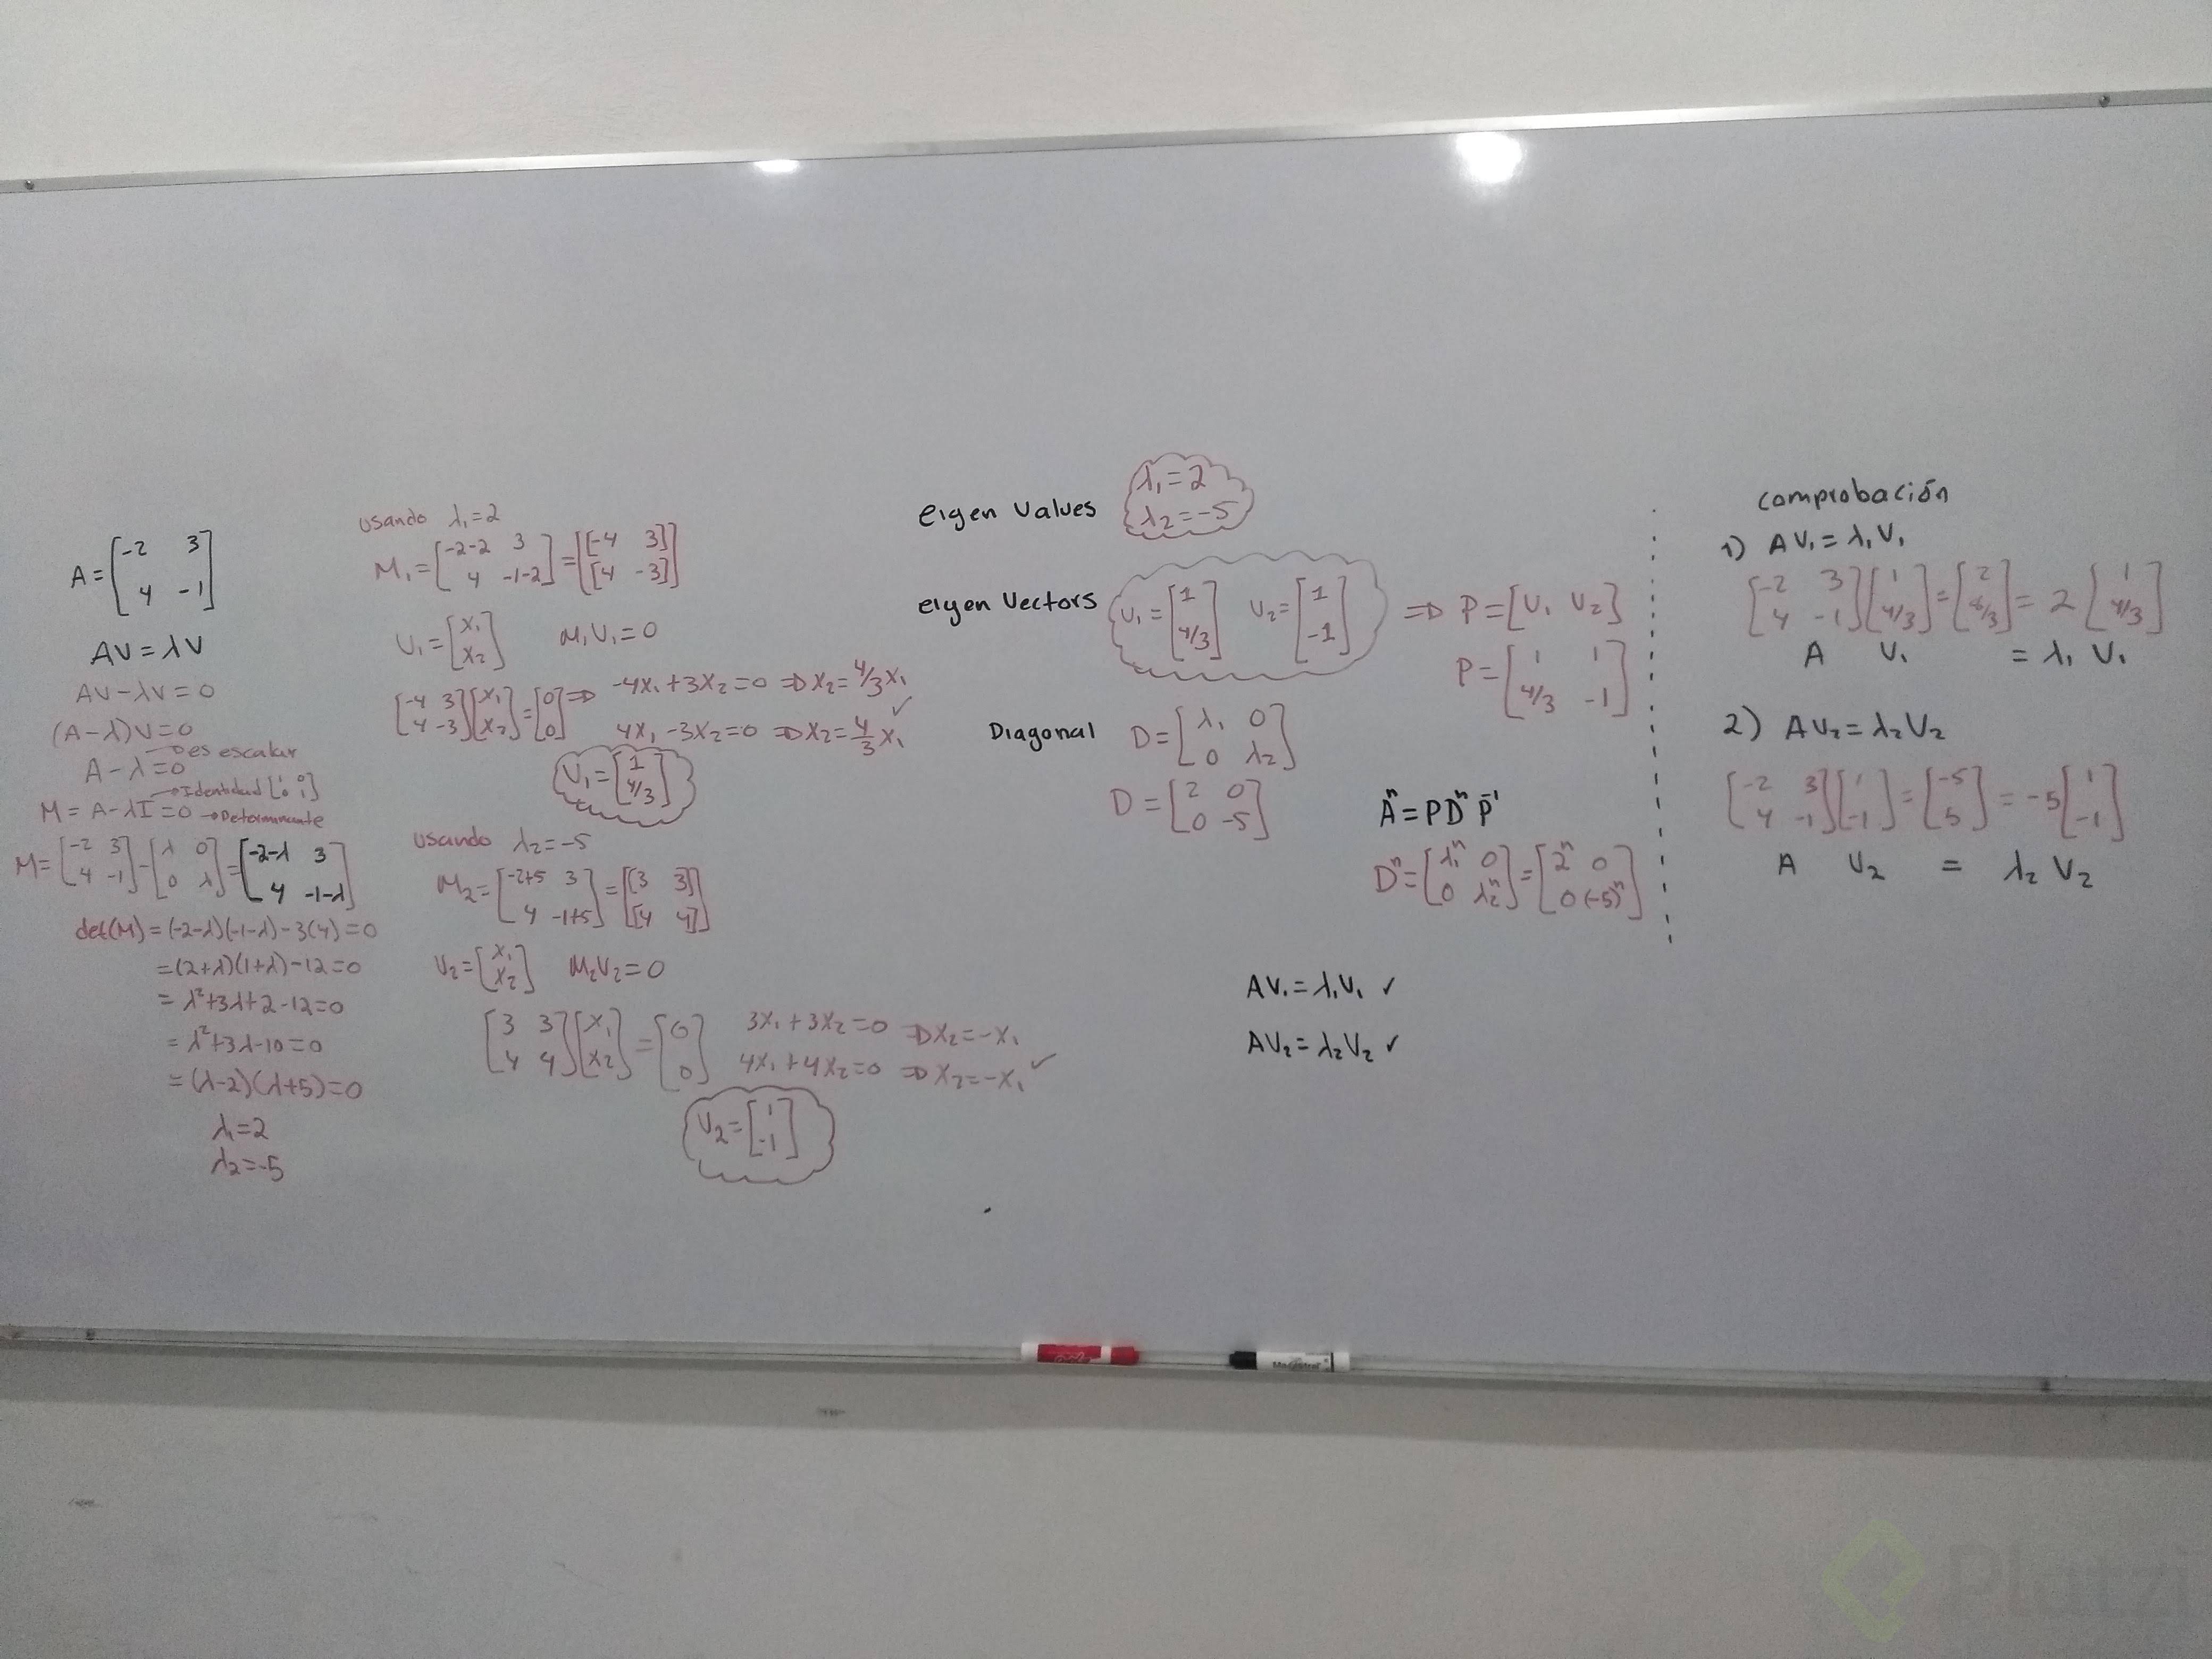 A = [-2 3; 4 -1]
AV = λV
AV - λV = 0
(A-λ)V = 0
→ es escalar
A - λ = 0
→ Identidad [1 0; 0 1]
M = A - λI = 0 → Determinante
M = [-2 3; 4 -1] - [λ 0; 0 λ] = [-2-λ 3; 4 -1-λ]
det(M) = (-2-λ)(-1-λ) - 3(4) = 0
= (2+λ)(1+λ) - 12 = 0
= λ² + 3λ + 2 - 12 = 0
= λ² + 3λ - 10 = 0
= (λ-2)(λ+5) = 0
λ₁ = 2
λ₂ = -5
usando λ₁ = 2
M₁ = [-2-2 3; 4 -1-2] = [[-4 3] [4 -3]]
V₁ = [x₁; x₂] M₁V₁ = 0
[-4 3; 4 -3][x₁; x₂] = [0; 0] ⇒ -4x₁ + 3x₂ = 0 ⇒ x₂ = 4/3 x₁
4x₁ - 3x₂ = 0 ⇒ x₂ = 4/3 x₁ ✓
V₁ = [1; 4/3]
usando λ₂ = -5
M₂ = [-2+5 3; 4 -1+5] = [[3 3] [4 4]]
V₂ = [x₁; x₂] M₂V₂ = 0
[3 3; 4 4][x₁; x₂] = [0; 0] 3x₁ + 3x₂ = 0 ⇒ x₂ = -x₁
4x₁ + 4x₂ = 0 ⇒ x₂ = -x₁ ✓
V₂ = [1; -1]
eigen Values λ₁ = 2
λ₂ = -5
eigen Vectors V₁ = [1; 4/3] V₂ = [1; -1] ⇒ P = [V₁ V₂]
P = [1 1; 4/3 -1]
Diagonal D = [λ₁ 0; 0 λ₂]
D = [2 0; 0 -5]
Aⁿ = P Dⁿ P⁻¹
Dⁿ = [λ₁ⁿ 0; 0 λ₂ⁿ] = [2ⁿ 0; 0 (-5)ⁿ]
AV₁ = λ₁V₁ ✓
AV₂ = λ₂V₂ ✓
comprobación
1) AV₁ = λ₁V₁
[-2 3; 4 -1][1; 4/3] = [2; 8/3] = 2 [1; 4/3]
A V₁ = λ₁ V₁
2) AV₂ = λ₂V₂
[-2 3; 4 -1][1; -1] = [-5; 5] = -5 [1; -1]
A V₂ = λ₂ V₂
Magistral
Platzi